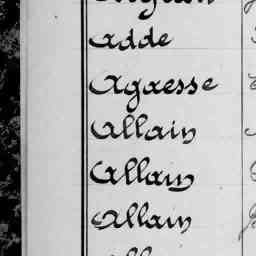 Adde
Agaesse
Allain
Allain
Allain